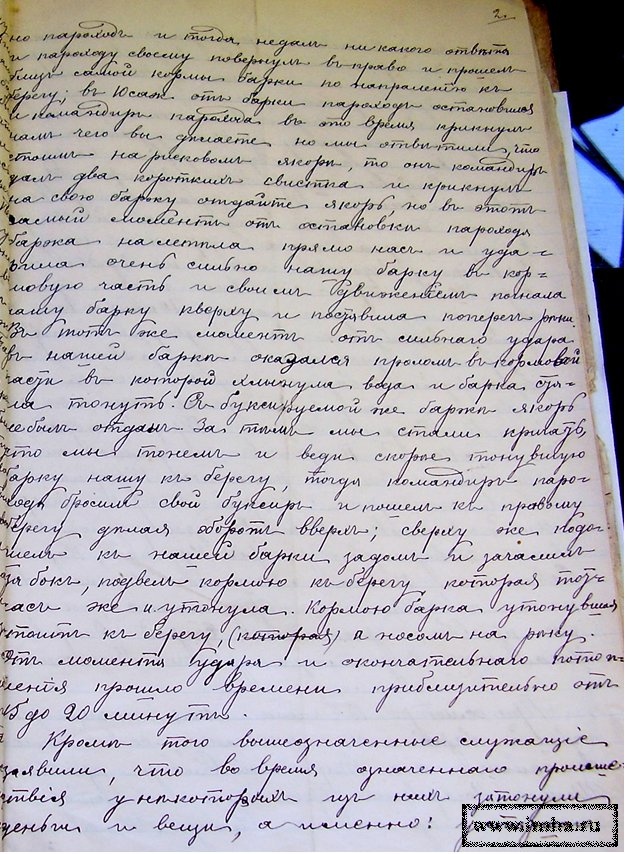 2.
но пароходъ и тогда недалъ ни какого отвѣта
и пароходу своему повернулъ въ право и прошелъ
близъ самой кормы барки по направленiю къ
берегу; въ отъ барки пароходъ остановился
и командиръ парохода въ это время крикнулъ
намъ чего вы дѣлаете но мы отвѣтили, что
стоимъ на рисковомъ якорѣ, то онъ командиръ
далъ два короткихъ свистка и крикнулъ
на свою баржу отдайте якорь, но въ этотъ
самый моментъ отъ остановки парохода
баржа налетѣла прямо насъ и уда-
рила очень сильно нашу барку въ кор-
мовую часть и своимъ движенiемъ погнала
нашу барку кверху и поставила поперегъ рѣки.
Въ тотъ же моментъ отъ сильнаго удара
въ нашей баркѣ оказался проломъ въ кормовой
части въ которой хлынула вода и барка ста-
ла тонуть. Съ буксируемой же баржи якорь
не былъ отданъ. За тѣмъ мы стали кричать,
что мы тонемъ и веди скорѣе тонувшую
барку нашу къ берегу, тогда командиръ паро-
хода бросилъ свой буксиръ и пошелъ къ правому
берегу дѣлая оборотъ вверхъ; сверху же подо-
шелъ къ нашей барки задомъ и зачалилъ
за бокъ, подвелъ кормою къ берегу которая тот-
часъ же и утонула. Кормою барка утонувшая
стоитъ къ берегу, (которая) а носомъ на рѣку.
Отъ момента удара и окончательнаго потоп-
ленiя прошло времени приблизительно отъ
15 до 20 минутъ.
Кромѣ того вышеозначенные служащiе
заявили, что во время означеннаго происше-
ствiя у нѣкоторыхъ изъ нихъ затонули
деньги и вещи, а именно: у
www.imha.ru